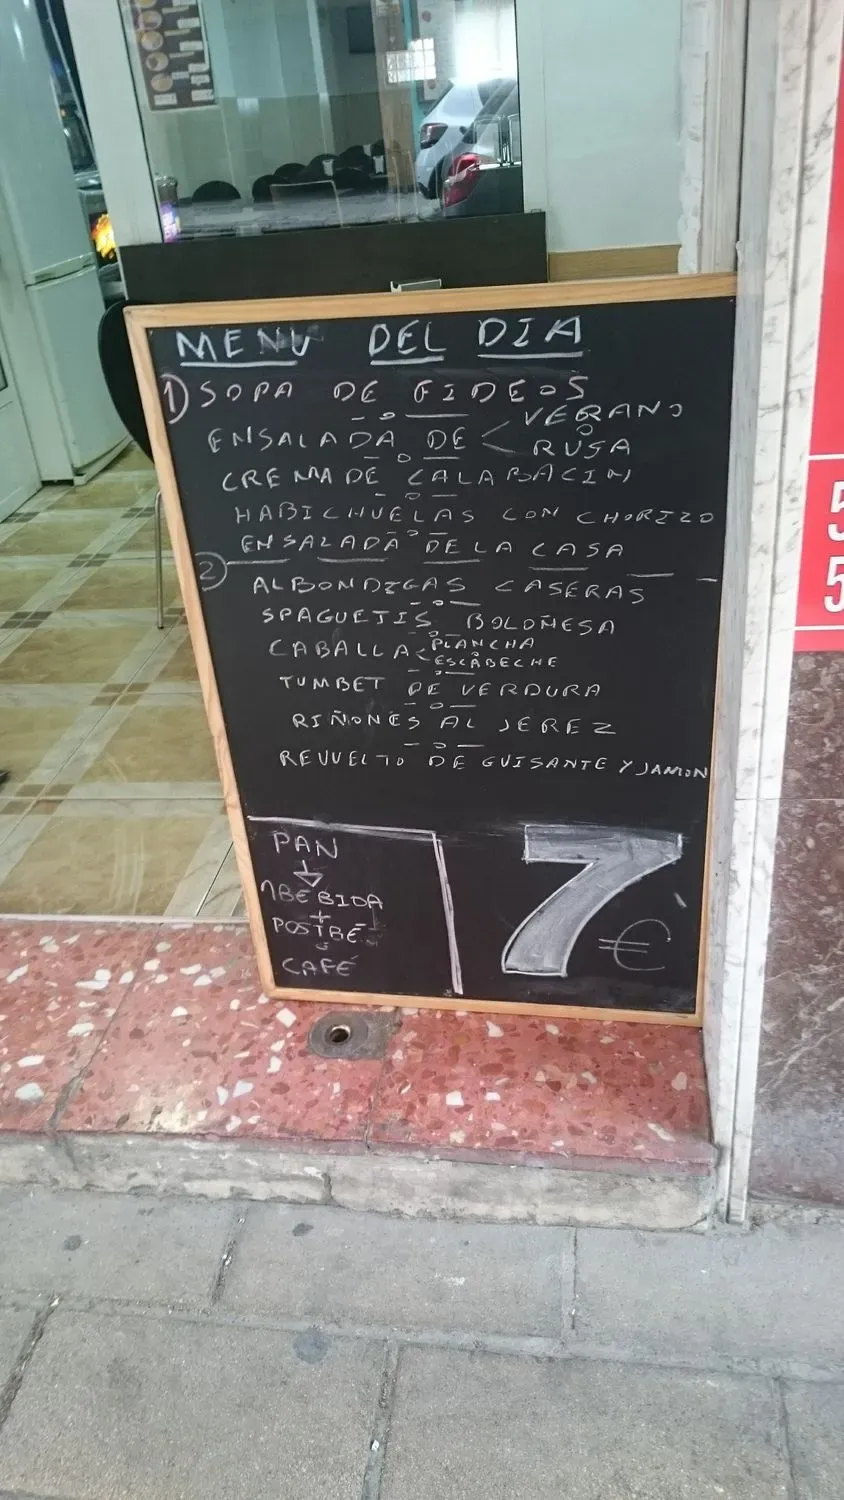 MENU DEL DIA
1) SOPA DE FIDEOS
ENSALADA DE < VERANO
O
RUSA
CREMA DE CALABACIN
HABICHUELAS CON CHORIZO
ENSALADA DE LA CASA
2 ALBONDIGAS CASERAS
SPAGUETIS BOLOÑESA
CABALLA < PLANCHA
O
ESCABECHE
TUMBET DE VERDURA
RIÑONES AL JEREZ
REVUELTO DE GUISANTE Y JAMON
PAN
+
1 BEBIDA
+
POSTRE
O
CAFÉ
7 €
5
5